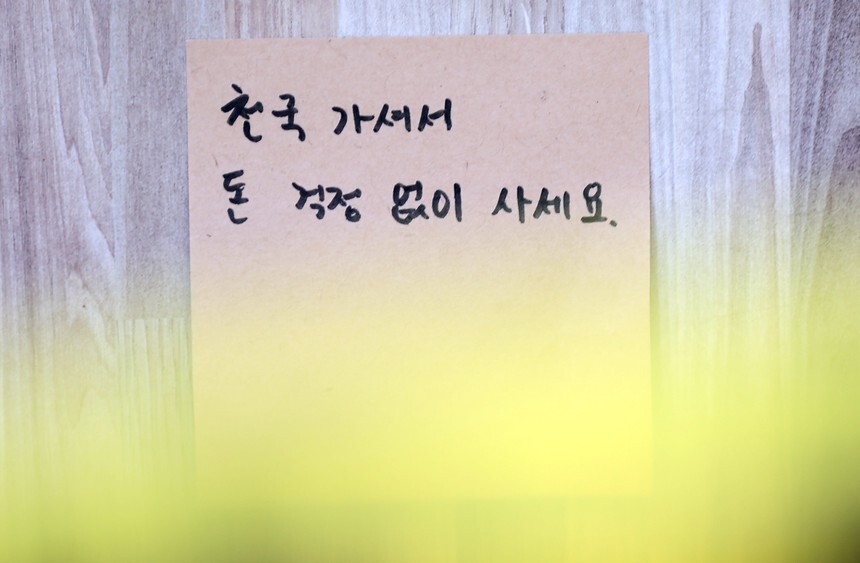 천국 가셔서
돈 걱정 없이 사세요.